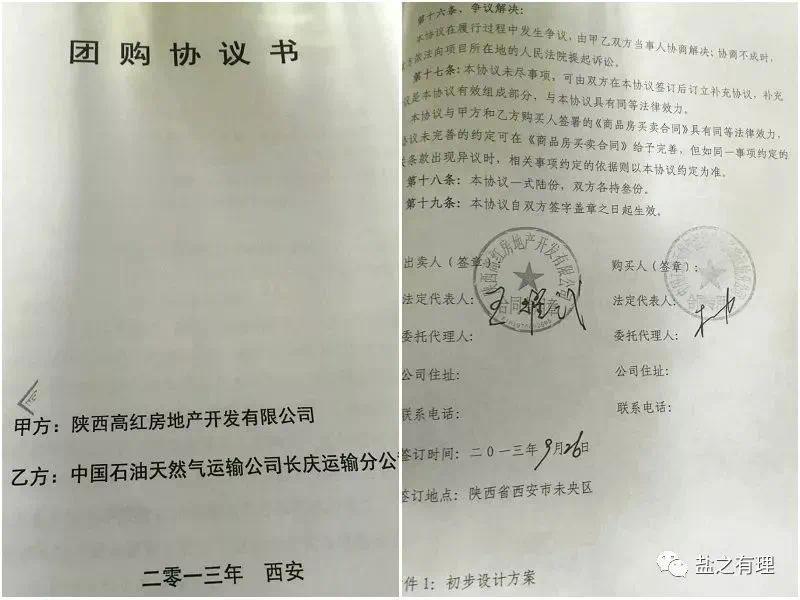 团购协议书
甲方：陕西高红房地产开发有限公司
乙方：中国石油天然气运输公司长庆运输分公
二零一三年 西安
第十六条、争议解决：
本协议在履行过程中发生争议，由甲乙双方当事人协商解决；协商不成时，
方依法向项目所在地的人民法院提起诉讼。
第十七条：本协议未尽事项，可由双方在本协议签订后订立补充协议，补充
议是本协议有效组成部分，与本协议具有同等法律效力。
本协议与甲方和乙方购买人签署的《商品房买卖合同》具有同等法律效力，
协议未完善的约定可在《商品房买卖合同》给予完善，但如同一事项约定的
关条款出现异议时，相关事项约定的依据则以本协议约定为准。
第十八条：本协议一式陆份，双方各持叁份。
第十九条：本协议自双方签字盖章之日起生效。
出卖人（签章）：
购买人（签章）：
陕西高红房地产开发有限公司
合同专用章
法定代表人：
法定代表人：
委托代理人：
委托代理人：
公司住址：
公司住址：
联系电话：
联系电话：
签订时间：二0一三年9月26日
签订地点：陕西省西安市未央区
件1：初步设计方案
盐之有理